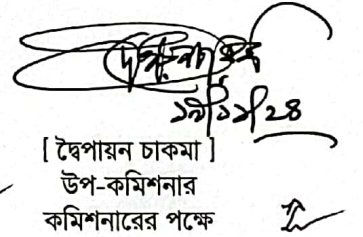 ১৯/১১/২৪
[ দ্বৈপায়ন চাকমা ]
উপ-কমিশনার
কমিশনারের পক্ষে